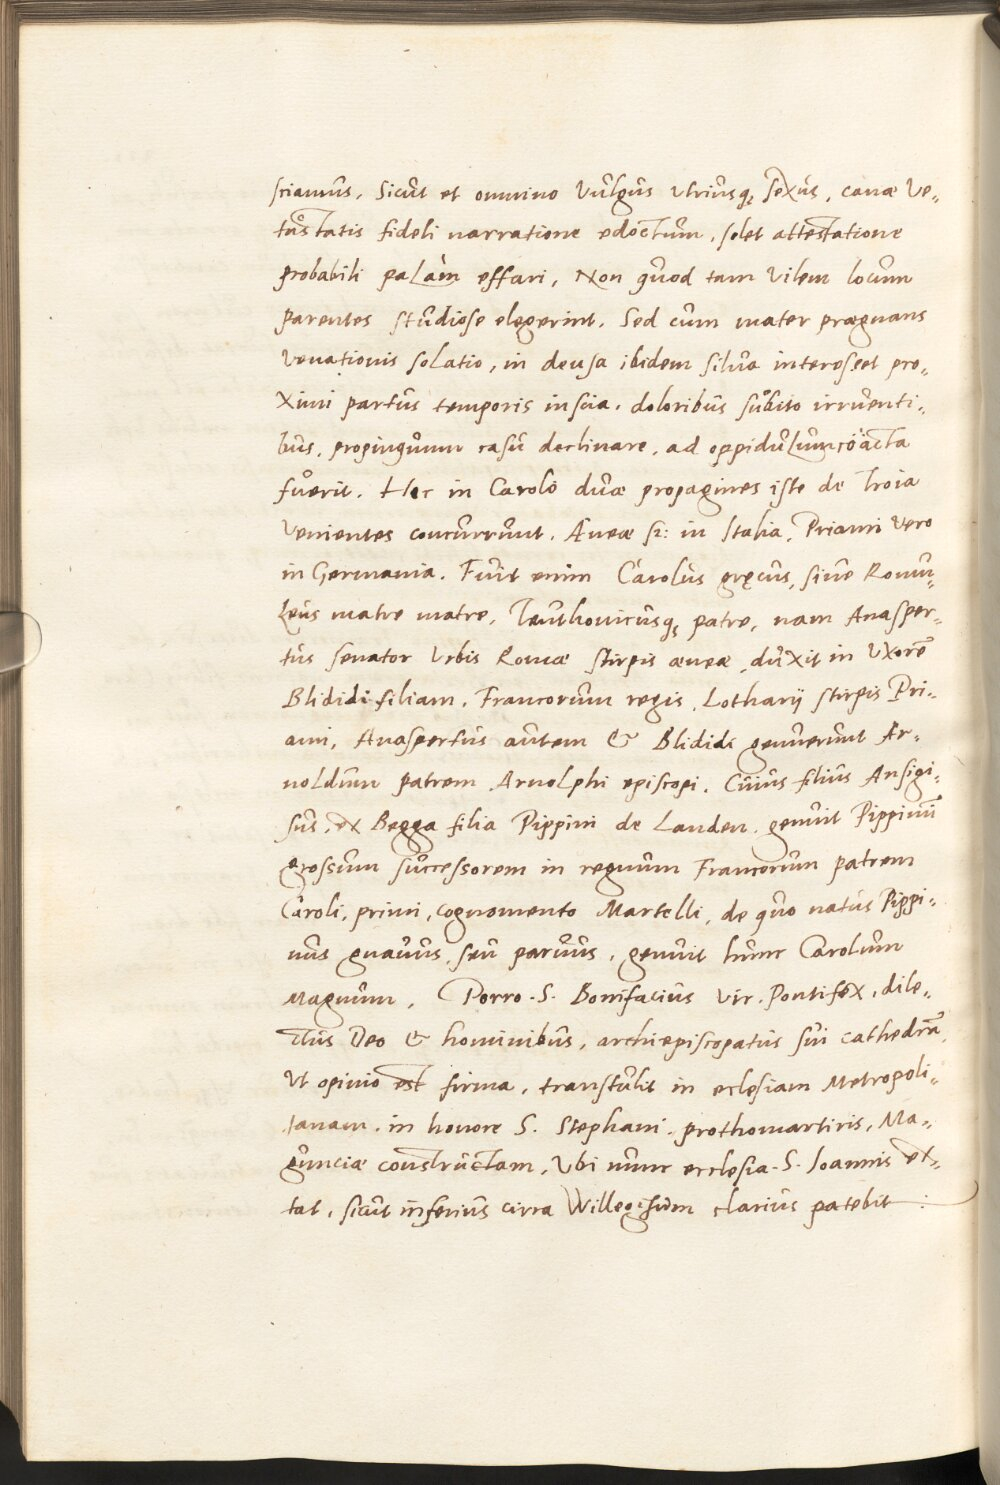 sciamus, Sicut et omnino Vulgus utriusq; sexus, canæ Ve-
tustatis fideli narratione edoctum, solet attestatione
probabili palàm effari, Non quod tam vilem locum
parentes studiose elegerint. Sed cum mater prægnans
Venationis solatio, in densa ibidem silua interesset pro-
ximi partus temporis inscia. doloribus subito irruenti-
bus, propinquum casu declinare, ad oppidulum coacta
fuerit. Hec in Carolo duæ propagines iste de Troia
Venientes concurrunt. Æneæ sz: in Italia, Priami Vero
in Germania. Fuit enim Carolus gręcus, siue Romu-
leus matre matre, Teuthonicusq; patre, nam Ansper-
tus senator Urbis Romæ stirpis æneæ, duxit in Uxorē
Blididi filiam, Francorum regis, Lotharij stirpis Pri-
ami, Anaspertus autem & Blididi genuerunt Ar-
noldum patrem Arnolphi episcopi. Cuius filius Ansigi-
sus, ex Begga filia Pippini de Landen, genuit Pippinū
grossum successorem in regnum Francorum patrem
Caroli, primi, cognomento Martelli, de quo natus Pippi-
nus gnauus, seu paruus, genuit hunc Carolum
Magnum, Porro S. Bonifacius vir, Pontifex, dile-
ctus Deo & hominibus, archiepiscopatus sui cathedrā,
Ut opinio est firma, transtulit in eclesiam Metropoli-
tanam, in honore S. Stephani, prothomartiris, Ma-
guncia constructam, Ubi nunc ecclesia S. Joannis ex-
tat, sicut inferius circa Willegisum clarius patebit :